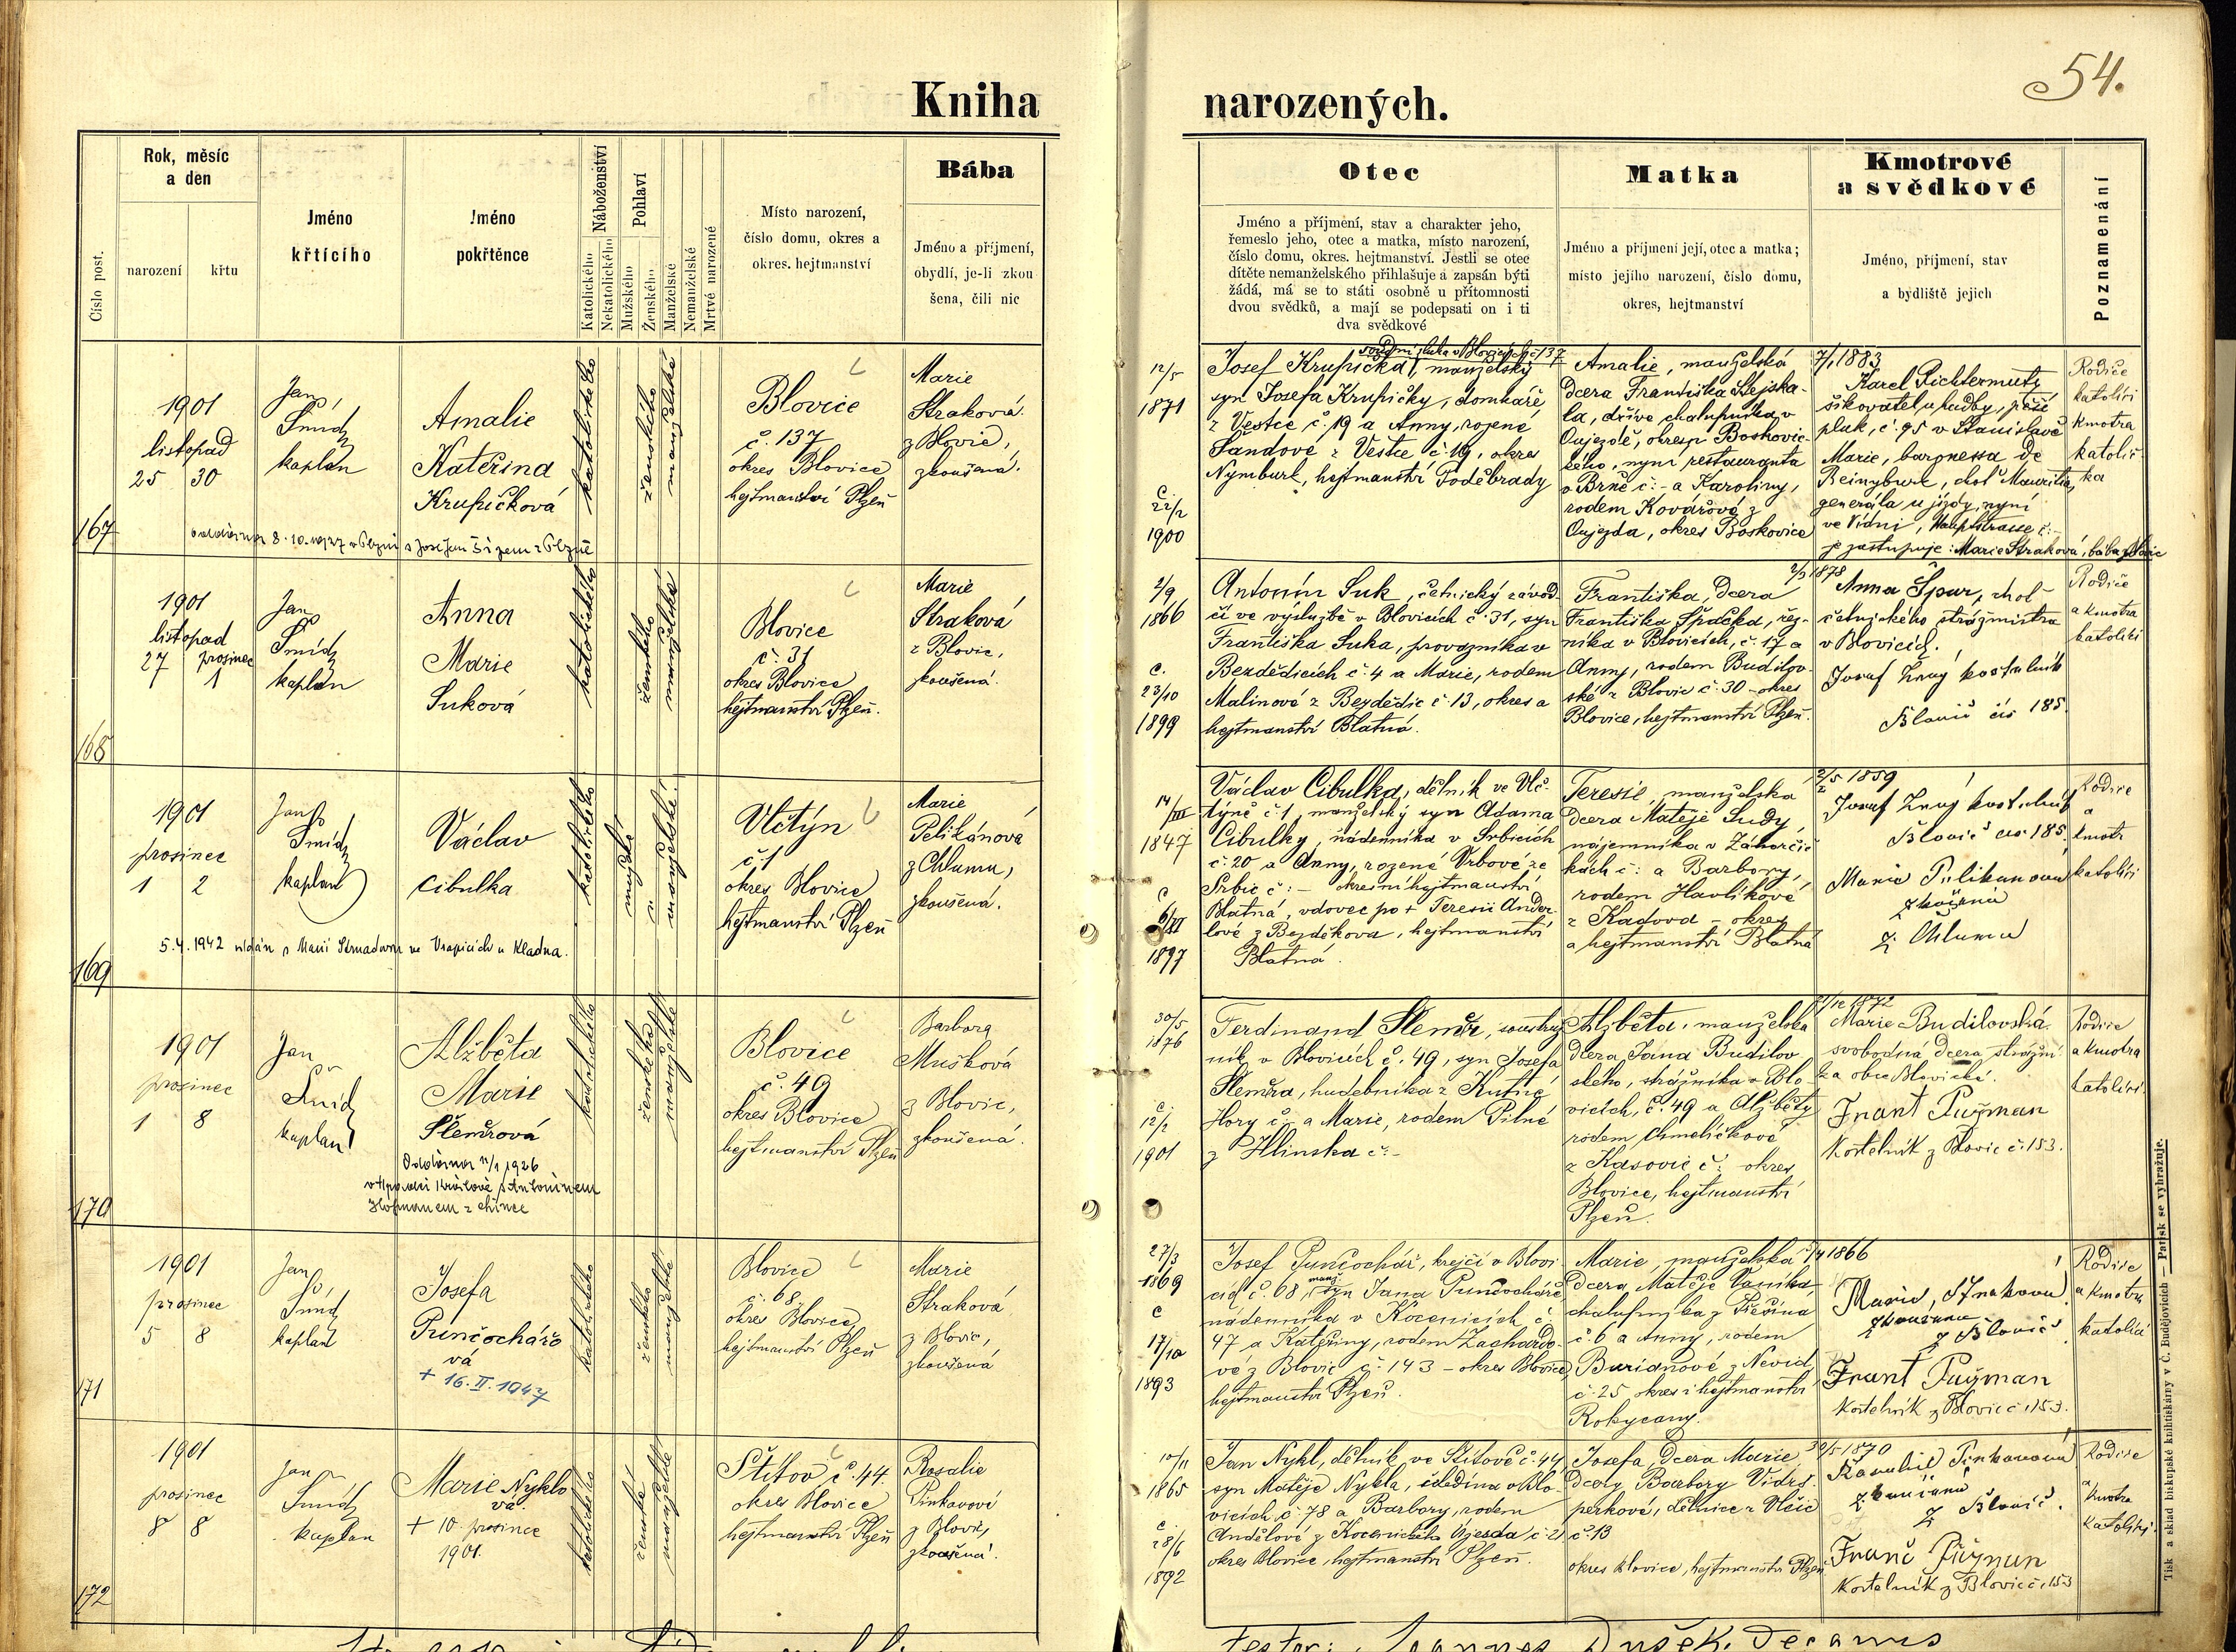 54.
Kniha narozených.
Číslo post.
Rok, měsíc
a den
narození
křtu
Jméno
křtícího
Jméno
pokřtěnce
Náboženství
Katolického
Nekatolického
Pohlaví
Mužského
Ženského
Manželské
Nemanželské
Mrtvé narozené
Místo narození,
číslo domu, okres a
okres. hejtmanství
Bába
Jméno a příjmení,
obydlí, je-li zkou
šena, čili nic
Otec
Jméno a příjmení, stav a charakter jeho,
řemeslo jeho, otec a matka, místo narození,
číslo domu, okres. hejtmanství. Jestli se otec
dítěte nemanželského přihlašuje a zapsán býti
žádá, má se to státi osobně u přítomnosti
dvou svědků, a mají se podepsati on i ti
dva svědkové
Matka
Jméno a příjmení její, otec a matka;
místo jejího narození, číslo domu,
okres, hejtmanství
Kmotrové
a svědkové
Jméno, příjmení, stav
a bydliště jejich
Poznamenání
167
1901
listopad
25 30
Jan
Šmíd
kaplan
Amalie
Kateřina
Krupičková
katolického
ženského
manželské
Blovice
č. 137
okres Blovice
hejtmanství Plzeň
Marie
Straková
z Blovic,
zkoušená.
oddána 8.10.1927 v Plzni s Josefem
12/5
1871
č.
22/2
1900
Josef Krupička, manželský
syn Josefa Krupičky, domkáře
z Vestce č. 19 a Anny, rozené
Šandové z Vestce č. 19, okres
Nymburk, hejtmanství Poděbrady
Amalie, manželská
dcera Františka Stejska-
la, dříve chalupníka v
Oujezdě, okresu Boskovic-
kého, nyní restauranta
v Brně č:- a Karoliny,
rodem Kovářové z
Oujezda, okres Boskovice
7/1 1883
Karel Richtermutz
šikovatel u hudby, pěší
pluk, č. 95 v Stanislavě
Marie, baronessa de
Reinyburk, choť Mauritia,
generála u jízdy, nyní
ve Vídni, Hauptstrasse č:-
je zastupuje: Marie Straková, bába z Blovic
Rodiče
katolíci
kmotra
katolič-
ka
168
1901
listopad
27 prosinec
1
Jan
Šmíd
kaplan
Anna
Marie
Suková
katolického
ženského
manželské
Blovice
č. 31
okres Blovice
hejtmanství Plzeň.
Marie
Straková
z Blovic,
zkoušená.
2/9
1866
č.
23/10
1899
Antonín Suk, četnický závod-
čí ve výslužbě v Blovicích č. 31, syn
Františka Suka, provazníka v
Bezdědicích č. 4 a Marie, rodem
Malinové z Bezdědic č. 13, okres a
hejtmanství Blatná.
Františka, dcera
Františka Špačka, řez-
níka v Blovicích, č. 17 a
Anny, rodem Budilov-
ské z Blovic č. 30 – okres
Blovice, hejtmanství Plzeň.
2/3 1878
Anna Špur, choť
četnického strážmistra
v Blovicích.
Josef Znoj kostelník
Blovic čís 185
Rodiče
a kmotra
katolíci
169
1901
prosinec
1 2
Jan
Šmíd
kaplan
Václav
Cibulka
katolického
mužské
manželské
Vlčtýn
č. 1
okres Blovice
hejtmanství Plzeň
Marie
Pelikánová
z Chlumu,
zkoušená.
5.4.1942 oddán s Marií Strnadovou ve Vrapicích u Kladna.
14/III
1847
č
6/XI
1897
Václav Cibulka, dělník ve Vlč-
týně č. 1, manželský syn Adama
Cibulky, nádenníka v Srbicích
č. 20 a Anny, rozené Vrbové ze
Srbic č:- okresní hejtmanství
Blatná, vdovec po + Teresii Ander-
lové z Bezděkova, hejtmanství
Blatná.
Teresie, manželská
dcera Matěje Sudy,
nájemníka v Záhorčič-
kách č: a Barbory,
rodem Havlíkové
z Kadova – okres
a hejtmanství Blatná
2/5 1859
Josef Znoj kostelník
Blovic čís 185
Marie Pelikanova
zkoušená
z Chlumu
Rodiče
a
kmotr
katolíci
170
1901
prosinec
1 8
Jan
Šmíd
kaplan
Alžběta
Marie
Šlemrová
katolického
ženského
manželské
Oddána 11/1 1926
s Antonínem
Hofmanem
Blovice
č. 49
okres Blovice
hejtmanství Plzeň
Barbora
Mušková
z Blovic,
zkoušená.
30/5
1876
č
12/2
1901
Ferdinand Šlemr, soustruž-
ník v Blovicích č. 49, syn Josefa
Šlemra, hudebníka z Kutné
Hory č:- a Marie, rodem Pilné
z Hlinska č:-
Alžběta, manželská
dcera Jana Budilov-
ského, strážníka v Blo-
vicích, č. 49 a Alžběty
rodem Chmelíčkové
z Kasovic č: okres
Blovice, hejtmanství
Plzeň.
21/12 1872
Marie Budilovská
svobodná dcera strážní-
ka obce Blovické.
Frant Pužman
Kostelník z Blovic č. 153.
Rodiče
a kmotra
katolíci.
171
1901
prosinec
5 8
Jan
Šmíd
kaplan
Josefa
Punčochářo-
vá
+ 16. II. 1947
katolického
ženského
manželské
Blovice
č. 68
okres Blovice,
hejtmanství Plzeň
Marie
Straková
z Blovic,
zkoušená
27/3
1869
č
17/10
1893
Josef Punčochář, krejčí v Blovi-
cích č. 68, manž. syn Jana Punčocháře
nádenníka v Kocenicích č.
47 a Kateřiny, rodem Zachardo-
vé z Blovic č. 143 – okres Blovice,
hejtmanství Plzeň.
Marie, manželská
dcera Matěje Vaníka
chalupníka z Těšína
č. 6 a Anny, rodem
Burianové z Nevid
č. 25, okres i hejtmanství
Rokycany.
1866
Marie, Strakova
zkoušena
z Blovic
Frant Pužman
Kostelník z Blovic č. 153.
Rodiče
a kmotra
katolíci
172
1901
prosinec
8 8
Jan
Šmíd
kaplan
Marie Nyklo-
vá
+ 10. prosince
1901.
katolického
ženské
manželské
Štítov č. 44
okres Blovice
hejtmanství Plzeň
Rosalie
Pinkavová
z Blovic,
zkoušená.
10/11
1865
č.
28/6
1892
Jan Nykl, dělník ve Štítově č. 44,
syn Matěje Nykla, čeledína v Blo-
vicích č. 78 a Barbory, rodem
Andělové z Kocenického Újezda č. 2,
okres Blovice, hejtmanství Plzeň.
Josefa, dcera Marie
dcery Barbory Vidrš-
perkové, dělnice z Vlčic
č. 13
okres Blovice, hejtmanství Plzeň
1870
Rosalie Pinkavova
zkoušena
z Blovic.
Franc Pužman
Kostelník z Blovic č. 153
Rodiče
a
kmotra
katolíci.
Tisk a sklad biskupské knihtiskárny v Č. Budějovicích — Patisk se vyhražuje.
Joannes Dušek, Decanus